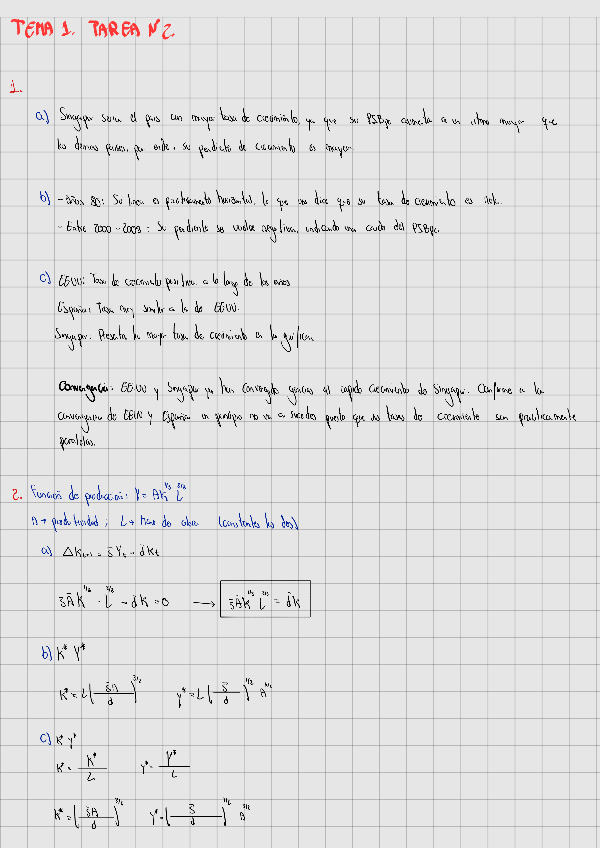 TEMA 1. TAREA Nº2.
1.
a) Singapur seria el pais con mayor tasa de crecimiento, ya que su PIBpc aumenta a un ritmo mayor que
los demas paises, por ende, su pendiente de crecimiento es mayor.
b) - años 80: Su linea es practicamente horizontal, lo que nos dice que su tasa de crecimiento es
- Entre 2000-2003: Su pendiente se vuelve negativa, indicando una caida del PIBpc.
c) EEUU: Tasa de crecimiento positiva a lo largo de los años
España: Tasa muy similar a la de EEUU.
Singapur: Presenta la mayor tasa de crecimiento en la gráfica
Convergencia: EEUU y Singapur ya han convergido gracias al rapido crecimiento de Singapur. Conforme a la
convergencia de EEUU y España en principio no va a suceder puesto que sus tasas de crecimiento son practicamente
paralelas.
2. Función de produccion: Y = AK^1/3 L^2/3
A → productividad ; L → mano de obra (constantes los dos)
a) ΔKt+1 = s̄Yt - d̄Kt
s̄ĀK^1/3 · L̄^2/3 - d̄K = 0 → s̄ĀK^1/3 L̄^2/3 = d̄K
b) K* Y*
K* = L(s̄A/d)^3/2 Y* = L(s̄/d)^1/2 A^3/2
c) K* y*
K* = K*/L y* = Y*/L
K* = (s̄A/d)^3/2 y* = (s̄/d)^1/2 A^3/2